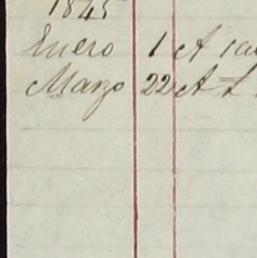 1845
Enero 1 A
Marzo 22 A